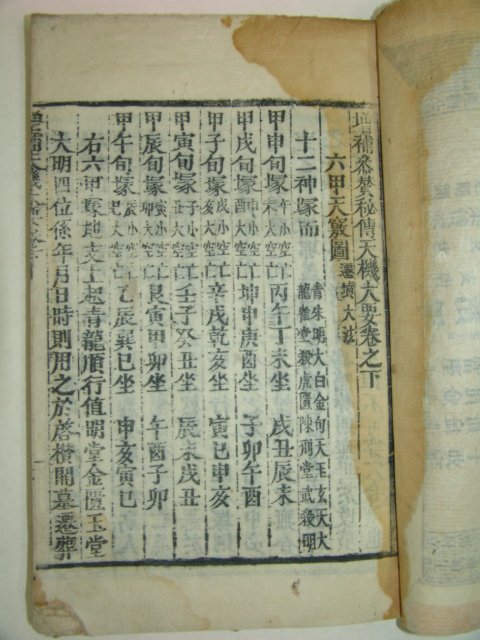 增補參贊秘傳天機大要卷之下
六甲天竅圖 遷墳大法
十二神塚而 青朱明大白金句天玉玄天大
龍雀堂殺虎匱陳刑堂武殺明
甲申旬塚 午小空亡 未大空亡 丙午丁未坐 戌丑辰未
甲戌旬塚 申小空亡 酉大空亡 坤申庚酉坐 子卯午酉
甲子旬塚 戌小空亡 亥大空亡 辛戌乾亥坐 寅巳申亥
甲寅旬塚 子小空亡 丑大空亡 壬子癸丑坐 辰未戌丑
甲辰旬塚 寅小空亡 卯大空亡 艮寅甲卯坐 午酉子卯
甲午旬塚 辰小空亡 巳大空亡 乙辰巽巳坐 申亥寅巳
右六甲塚地支上起青龍順行値明堂金匱玉堂
大明四位係年月日時則用之於啓欑開墓遷葬